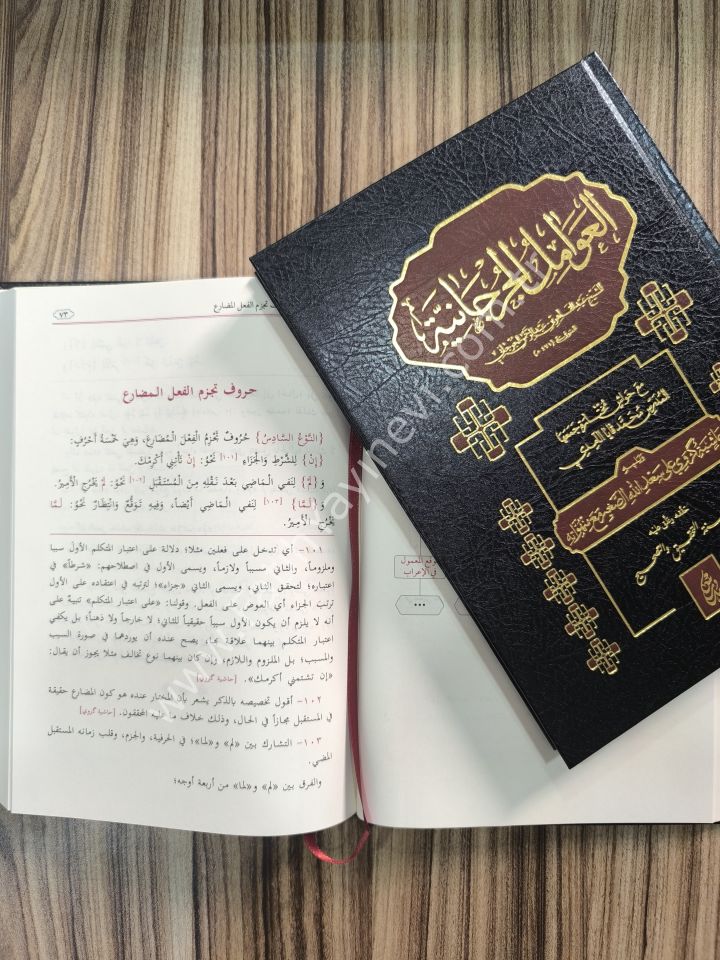 ٧٣
تجزم الفعل المضارع
حروف تجزم الفعل المضارع
{النَّوْعُ السَّادِسُ} حُرُوفٌ تَجْزِمُ الْفِعْلَ الْمُضَارِعَ، وَهِيَ خَمْسَةُ أَحْرُفٍ:
{إِنْ} لِلشَّرْطِ وَالْجَزَاءِ [١٠١] نَحْوُ: إِنْ تَأْتِنِي أُكْرِمْكَ.
وَ{لَمْ} لِنَفيِ الْمَاضِي بَعْدَ نَقْلِهِ مِنَ الْمُسْتَقْبَلِ [١٠٢] نَحْوُ: لَمْ يَخْرُجِ الْأَمِيرُ.
وَ{لَمَّا} [١٠٣] لِنَفي الْمَاضِي أَيْضاً، وَفِيهِ تَوَقُّعٌ وَانْتِظَارٌ نَحْوُ: لَمَّا
يَخْرُجِ الْأَمِيرُ.
١٠١- أي تدخل على فعلين مثلا؛ دلالة على اعتبار المتكلم الأول سببا
وملزوماً، والثاني مسبباً ولازماً، ويسمى الأول في اصطلاحهم: «شرطاً» في
اعتباره؛ لتحقق الثاني، ويسمى الثاني «جزاء»؛ لترتبه في اعتقاده على الأول
ترتب الجزاء أي العوض على الفعل. وقولنا: «على اعتبار المتكلم» تنبيهٌ على
أنه لا يلزم أن يكون الأول سبباً حقيقياً للثاني؛ لا خارجاً ولا ذهناً؛ بل يكفي
اعتبار المتكلم بينهما علاقة بما، يصح عنده أن يوردهما في صورة السبب
والمسبب؛ بل الملزوم واللازم، وإن كان بينهما نوع تخالف مثلا يجوز أن يقال:
«إن تشتمني أكرمك». [حاشية گروي]
١٠٢- أقول تخصيصه بالذكر يشعر بأن المختار عنده هو كون المضارع حقيقة
في المستقبل مجازاً في الحال، وذلك خلاف ما عليه المحققون. [حاشية گروي]
١٠٣- التشارك بين «لم» و«لما»؛ في الحرفية، والجزم، وقلب زمانه المستقبل
المضي.
والفرق بين «لم» و«لما» من أربعة أوجه؛
المعمول
في الإعراب
العوامل الجرجانية